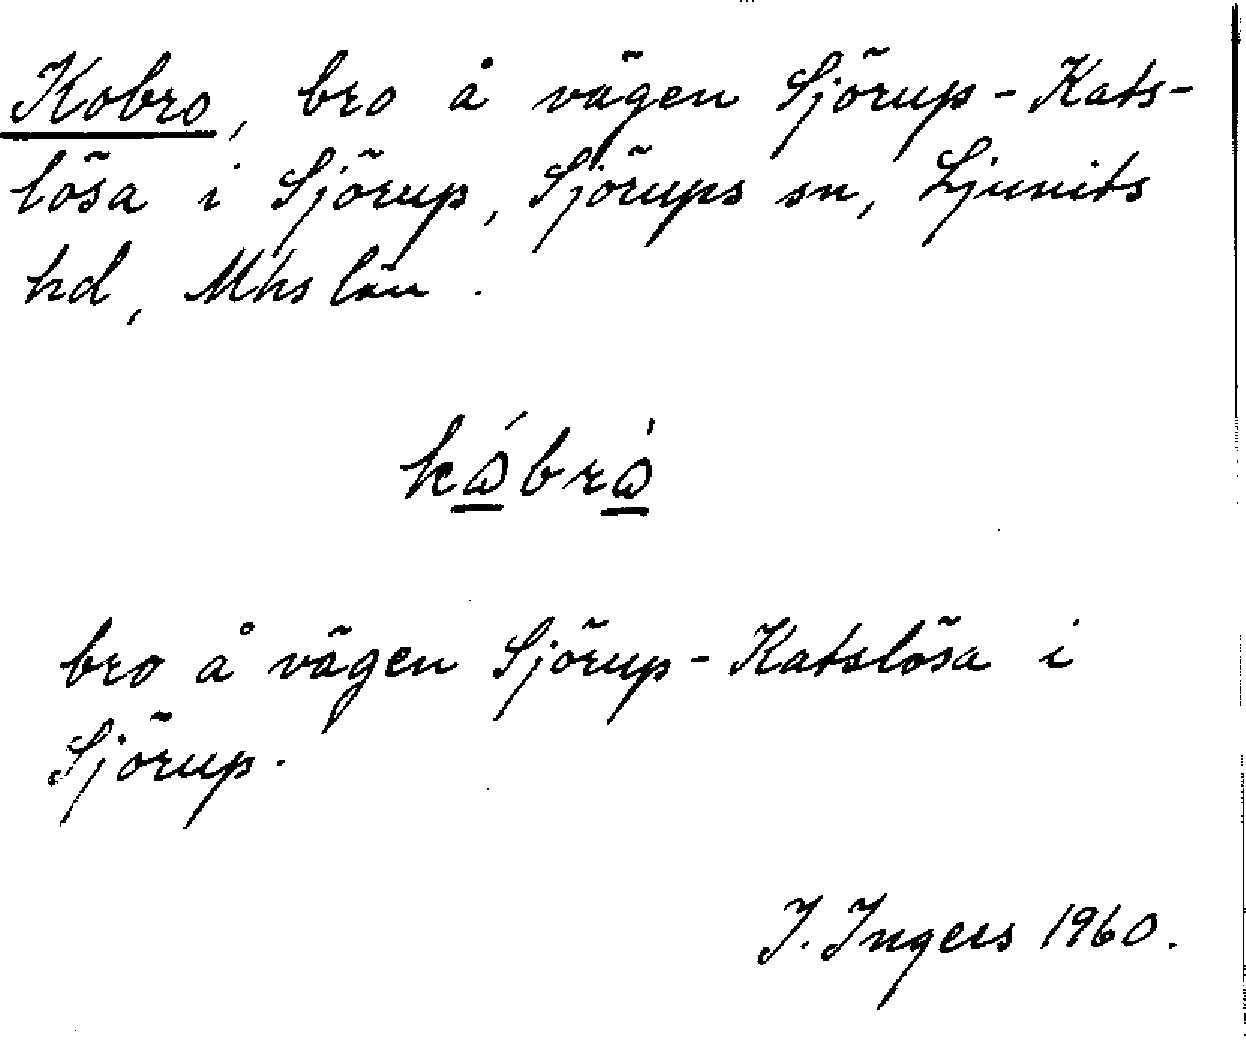 Kobro, bro å vägen Sjörup-Kats-
lösa i Sjörup, Sjörups sn, Ljunits
hd, Mhs län.
kώ̲brὼ̲
bro å vägen Sjörup-Katslösa i
Sjörup.
I. Ingers 1960.